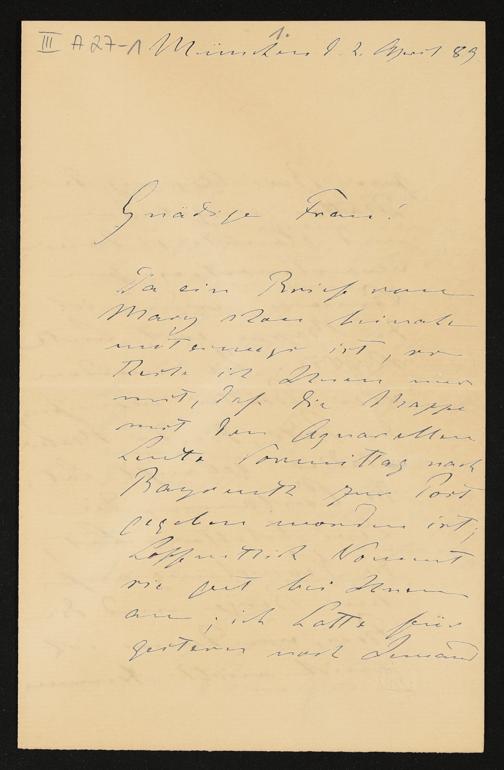 III A 27-1 1.
München d. 2. April 89
Gnädige Frau!
Da ein Brief von
Mary Ihnen beinah
unterwegs ist, so
theile ich Ihnen nur
mit, daß die Mappe
mit den Aquarellen
heute Vormittag nach
Bayreuth zur Post
gegeben worden ist;
hoffentlich kommt
sie gut bei Ihnen
an; ich hatte für
gestern noch Jemand